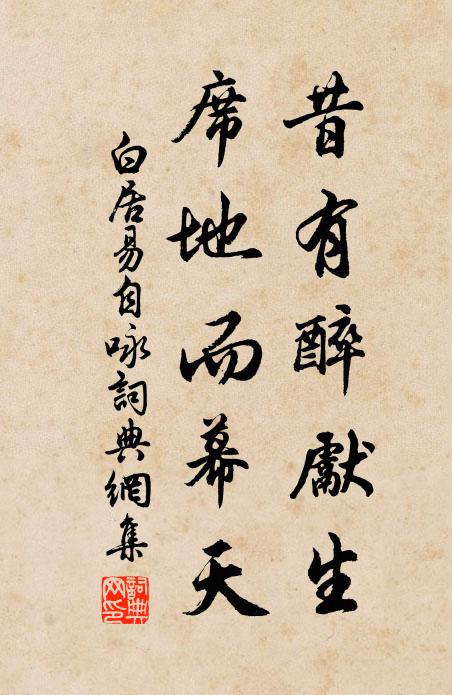 昔有醉獻生
席地而幕天
白居易自咏詞典網集
詞典網印